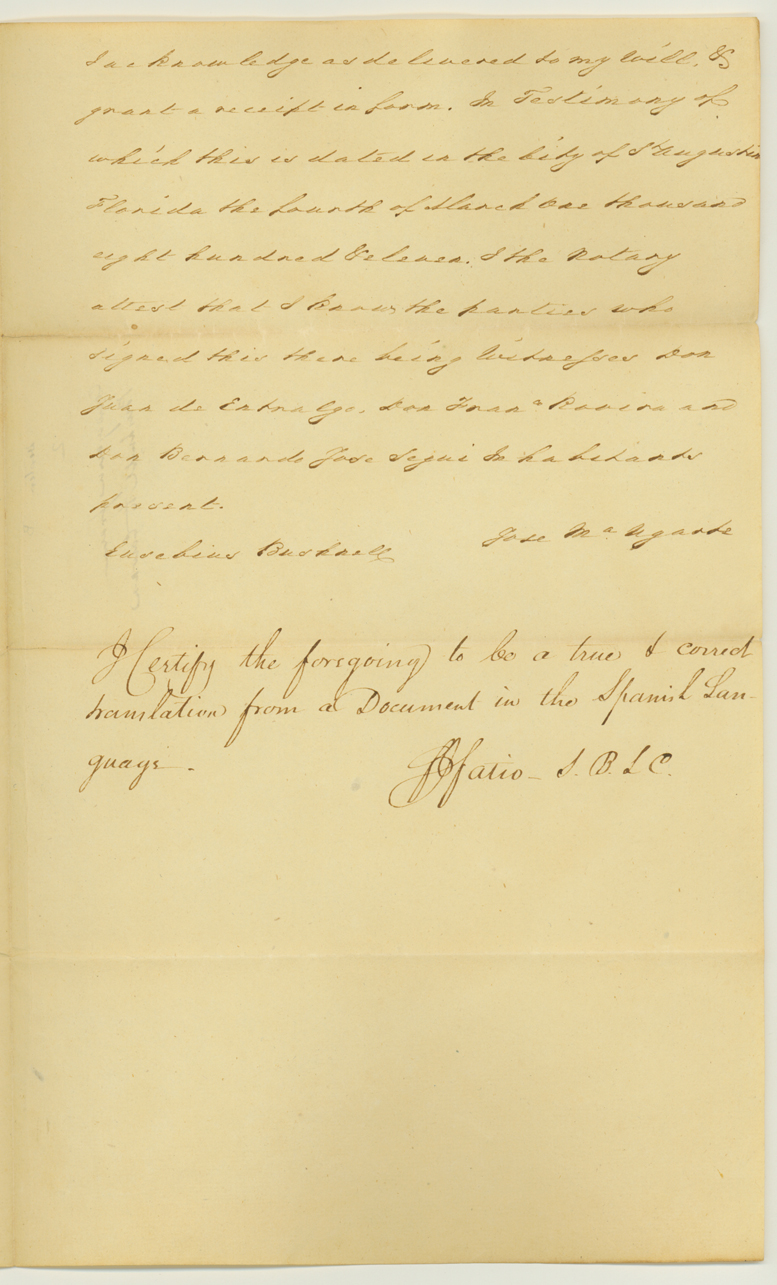 I acknowledge as delivered to my Will, &
grant a receipt in form. In Testimony of
which this is dated in the City of St Augustin
Florida the fourth of March One thousand
eight hundred & eleven. I the Notary
attest that I know the parties who
signed this there being Witnesses Don
Juan de Entralgo. Don Franca Rovira and
Don Bernardo Jose Segui Inhabitants
present.
Eusebius Bushnell Jose Ma Ugarte
I Certify the foregoing to be a true & correct
translation from a Document in the Spanish Lan-
guage -
Fatio - S. B. L C.